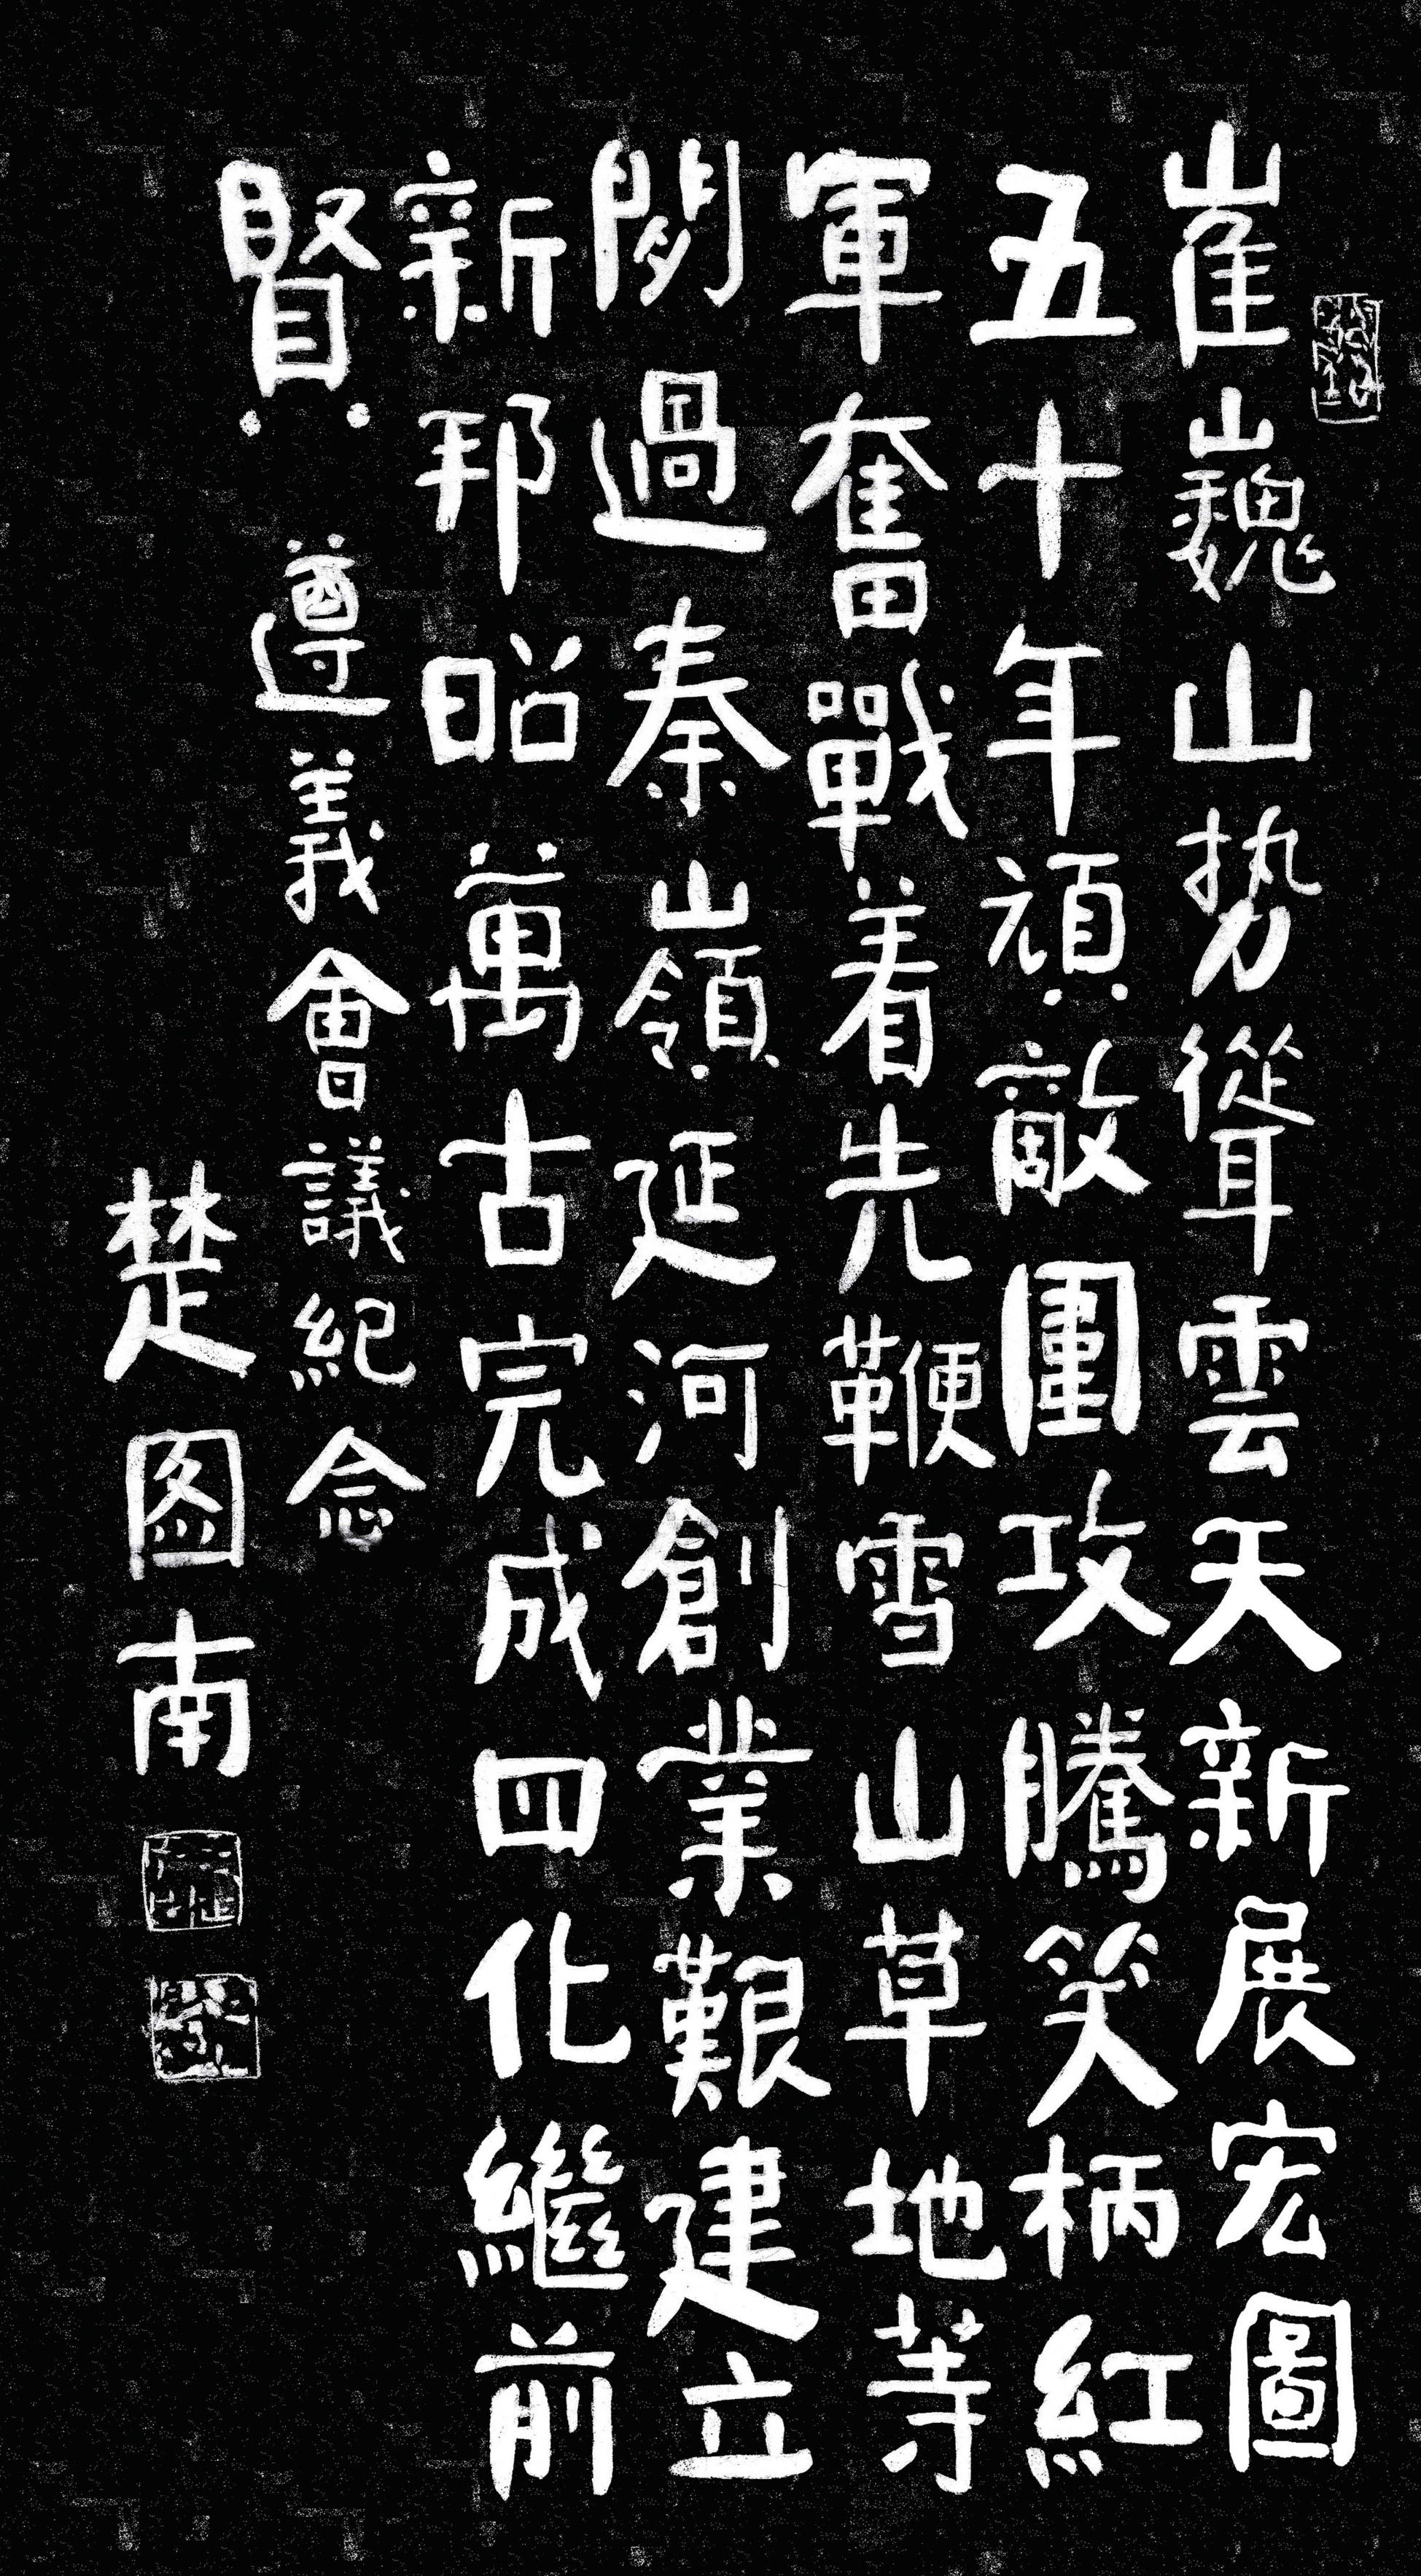 崔巍山势聳雲天新展宏圖
五十年頑敵圍攻騰笑柄紅
軍奮戰着先鞭雪山草地等
閒過秦嶺延河創業艱建立
新邦昭萬古完成四化繼前
賢 遵義會議紀念
楚图南